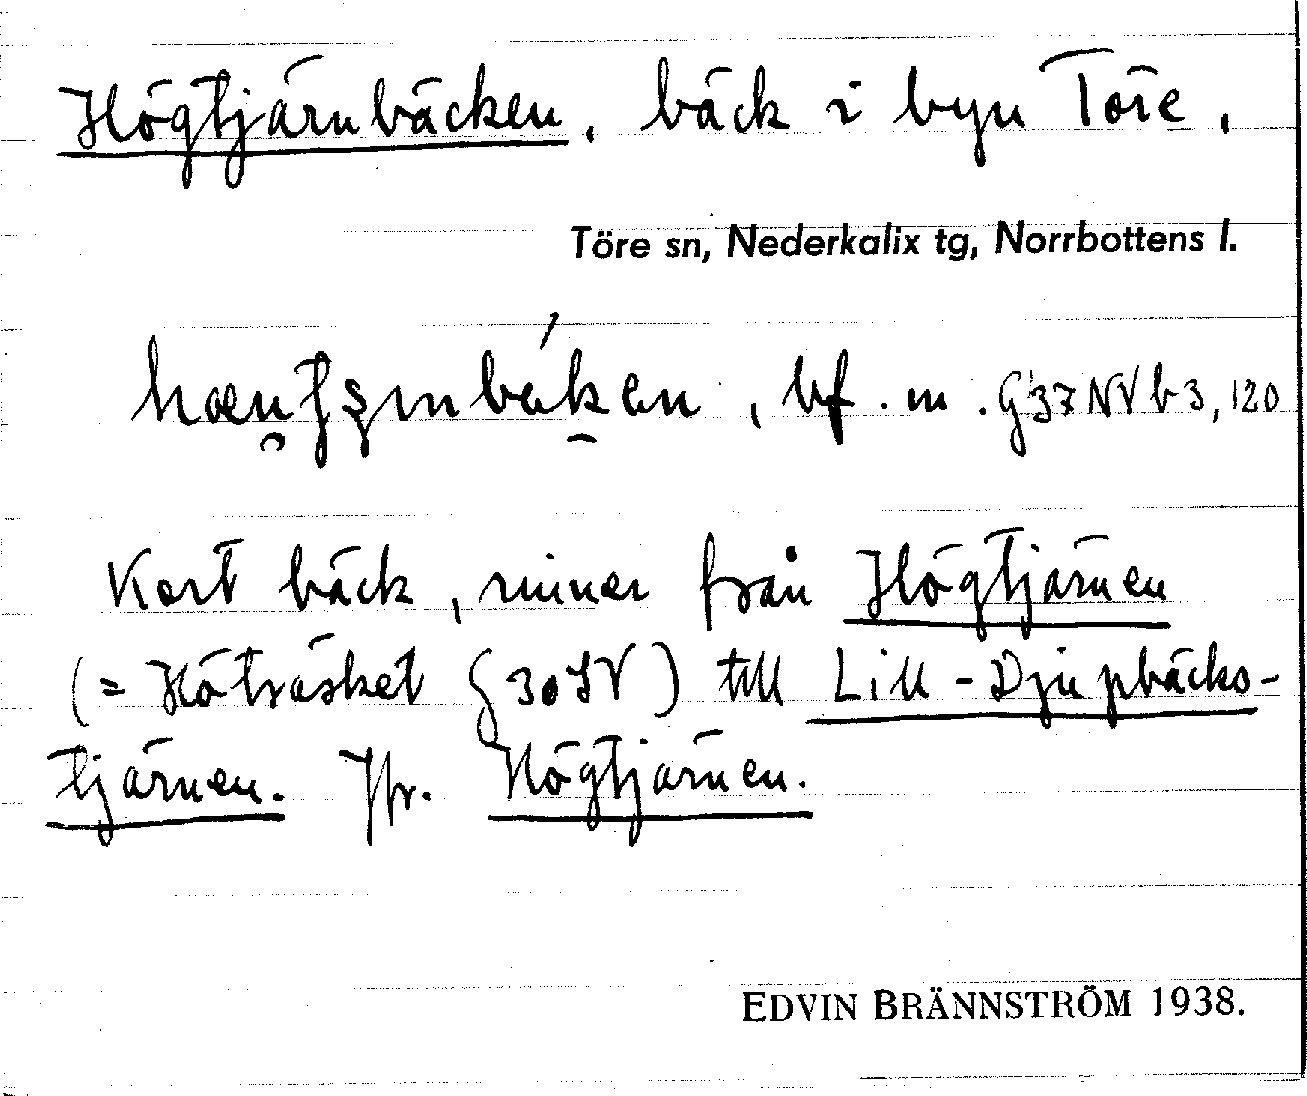 Högtjärnbäcken, bäck i byn Töre,
Töre sn, Nederkalix tg, Norrbottens l.
, bf. m. G 37 NV b 3, 120
Kort bäck, rinner från Högtjärnen
(= Höträsket § 30 SV) till Lill-Djupbäcks-
tjärnen. Jfr. Högtjärnen.
EDVIN BRÄNNSTRÖM 1938.